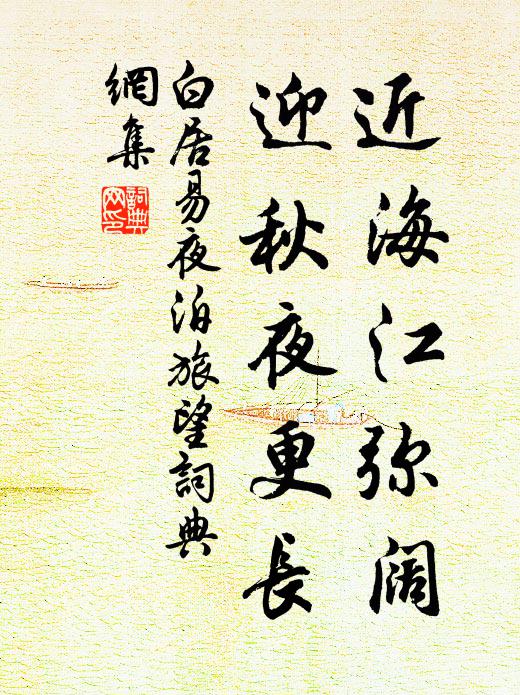 近海江弥阔
迎秋夜更長
白居易夜泊旅望詞典
網集
詞典
网印